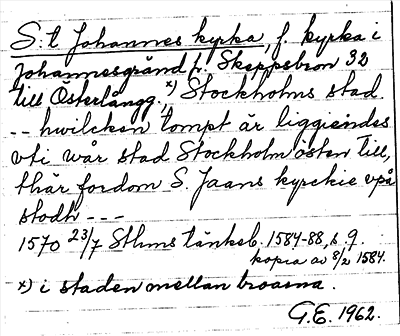 S:t Johannes kyrka, f. kyrka i
Johannesgränd fr. Skeppsbron 32
till Österlångg., x) Stockholms stad
-- hwilcken tompt är liggiendes
vti wår stad Stockholm östen till,
thär fordom S. Jaans kyrckie vpå
stodh ---
1570 23/7 Sthms tänkeb. 1584-88, s. 9.
kopia av 8/2 1584.
x) i staden mellan broarna.
G.E. 1962.